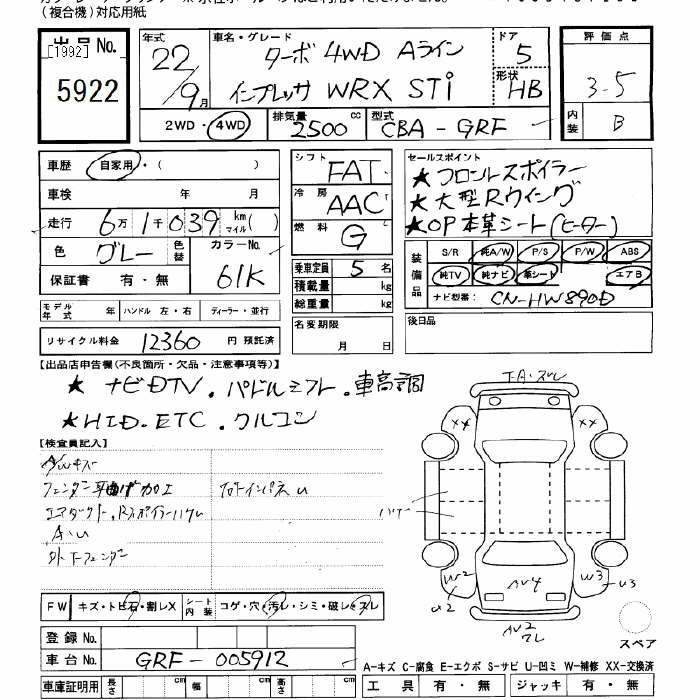 (複合機)対応用紙
出品No.
[1992]
5922
年式
22/9月
車名・グレード
ターボ 4WD Aライン
インプレッサ WRX STi
ドア
5
形状
HB
評価点
3-5
内装
B
2WD・4WD
排気量
2500
cc
型式
CBA-GRF
車歴
自家用・( )
車検 年 月
走行
6万1千039
km
マイル( )
色
グレー
色替
カラーNo.
61K
保証書 有・無
モデル年式 年
ハンドル 左・右
ディーラー・並行
リサイクル料金 12360 円 預託済
シフト
FAT
冷房
AAC
燃料
G
乗車定員 5 名
積載量 kg
総重量 kg
名変期限
月 日
セールスポイント
★フロントスポイラー
★大型Rウイング
★OP本革シート(ヒーター)
装備品
S/R 純A/W P/S P/W ABS
純TV 純ナビ 革シート エアB
ナビ型番: CN-HW890D
後日品
【出品店申告欄(不良箇所・欠品・注意事項等)】
★ ナビDTV.パドルシフト.車高調
★HID.ETC.クルコン
【検査員記入】
A/Wキズ
フェンダー耳曲げ加工
フロートインパネU
エアダクト.Rスポイラーハゲ
A.U
外 下フェンダー
FW キズ・トビ石・割レX
シート内装 コゲ・穴・汚レ・シミ・破レ・スレ
登録No.
車台No. GRF-005912
車庫証明用 長さ cm 幅 cm 高さ cm
XX
XX
W2
U2
AV4
W3
U3
スペア
A-キズ C-腐食 E-エクボ S-サビ U-凹ミ W-補修 XX-交換済
工具 有・無 ジャッキ 有・無